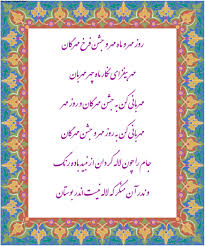 روز مهر و ماه مهر و جشن فرخ مهرگان
مهر بفزای ای نگار ماه چهر مهربان
مهربانی کن به جشن مهرگان و روز مهر
مهربانی کن به روز مهر و جشن مهرگان
جام را چون لاله گردان از نبید باده رنگ
وندر آن منگر که لاله نیست اندر بوستان